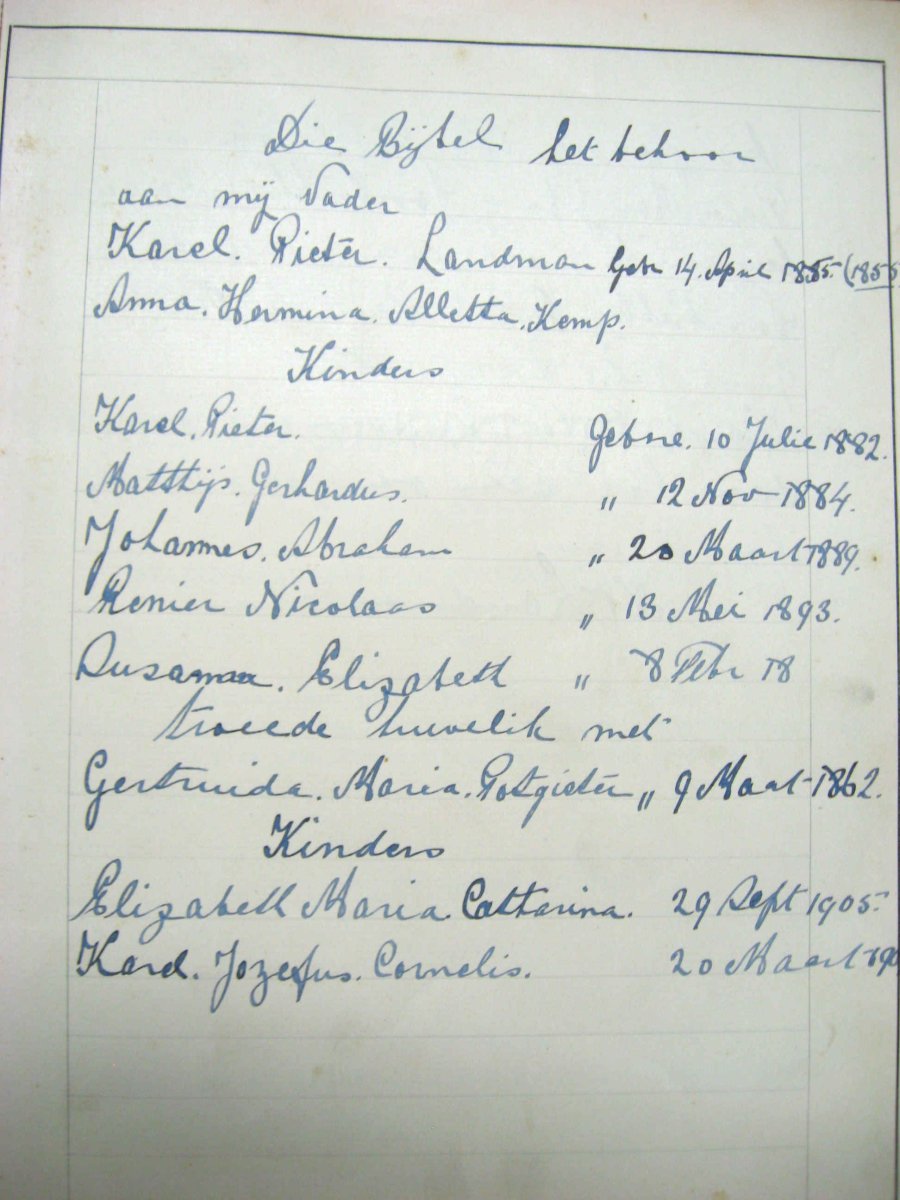 Die Bijbel het behoor
aan mij Vader
Karel. Pieter. Landman Gebr 14. April 1855. (1855
Anna. Hermina. Alletta. Kemp.
Kinders
Karel. Pieter. Gebore. 10 Julie 1882.
Matthijs. Gerhardus. „ 12 Nov 1884.
Johannes. Abraham „ 20 Maart 1889.
Renier Nicolaas „ 13 Mei 1893.
Susanna. Elizabeth „ 8 Febr 18
tweede huwelik met
Gertruida. Maria. Potgieter „ 9 Maart 1862.
Kinders
Elizabeth Maria Catharina. 29 Sept 1905.
Karel. Jozefus. Cornelis. 20 Maart 190